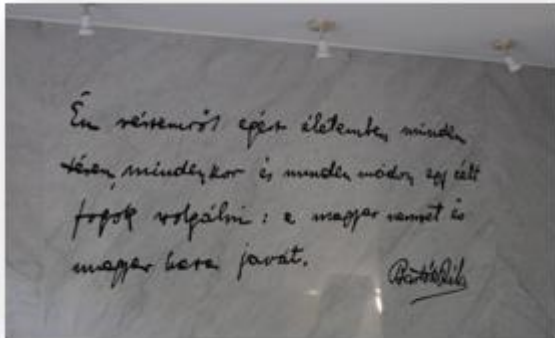 Én részemről egész életemben, minden
téren, mindenkor és minden módon egy célt
fogok szolgálni: a magyar nemzet és
magyar haza javát.
Bartók Béla